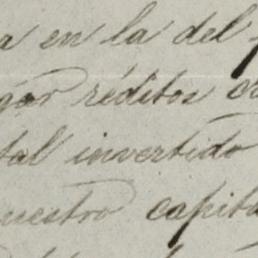 a en la del
gar réditos
tal invertido
nuestro capita